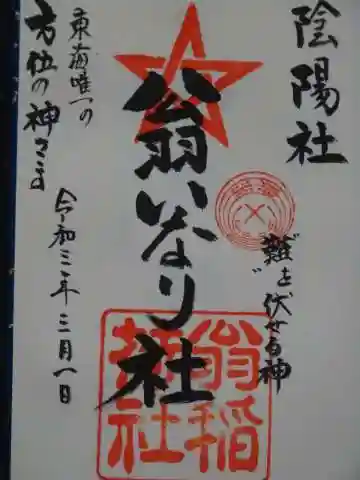 陰陽社
"難"を伏せる神
翁いなり社
東海唯一の
方位の神さま
令和三年三月一日
翁稲
荷社